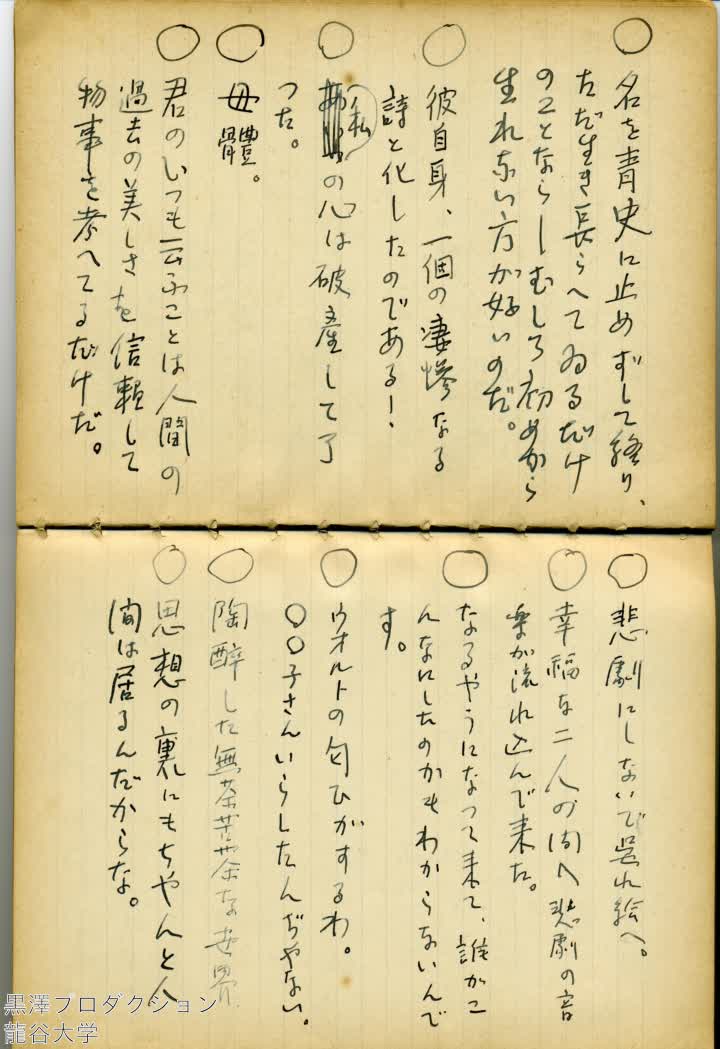 ○ 名を青史に止めずして終り、
ただ生き長らへてゐるだけ
のことならしむしろ初めから
生れない方が好いのだ。
○ 彼自身、一個の凄惨なる
詩と化したのである!
○ (私)の心は破産して了
つた。
○ 母體。
○ 君のいつも云ふことは人間の
過去の美しさを信頼して
物事を考へてるだけだ。
○ 悲劇にしないで呉れ給へ。
○ 幸福な二人の間へ悲劇の音
楽が流れ込んで来た。
○ なるやうになつて来て、誰がこ
んなにしたのかもわからないんで
す。
○ ウオルトの匂ひがするわ。
○○子さんいらしたんぢやない。
○ 陶醉した無茶苦茶な世界
○ 思想の裏にもちやんと人
間は居るんだからな。
黒澤プロダクション
龍谷大学